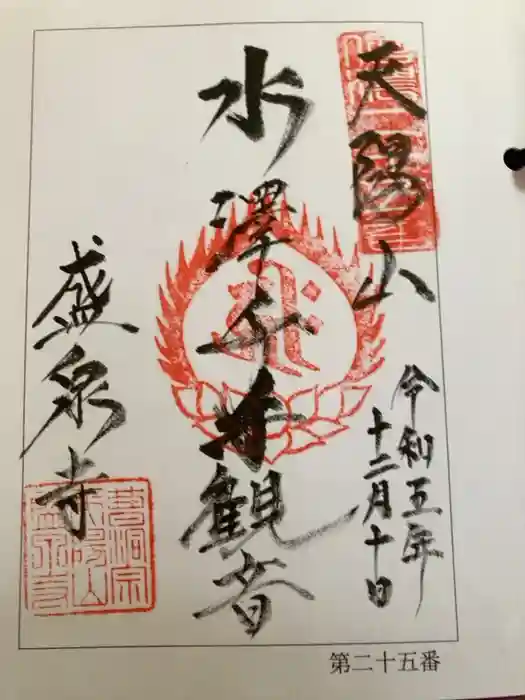 天陽山
令和五年
十二月十日
水澤千手観音
盛泉寺
曹洞宗
天陽山
盛泉寺
第二十五番